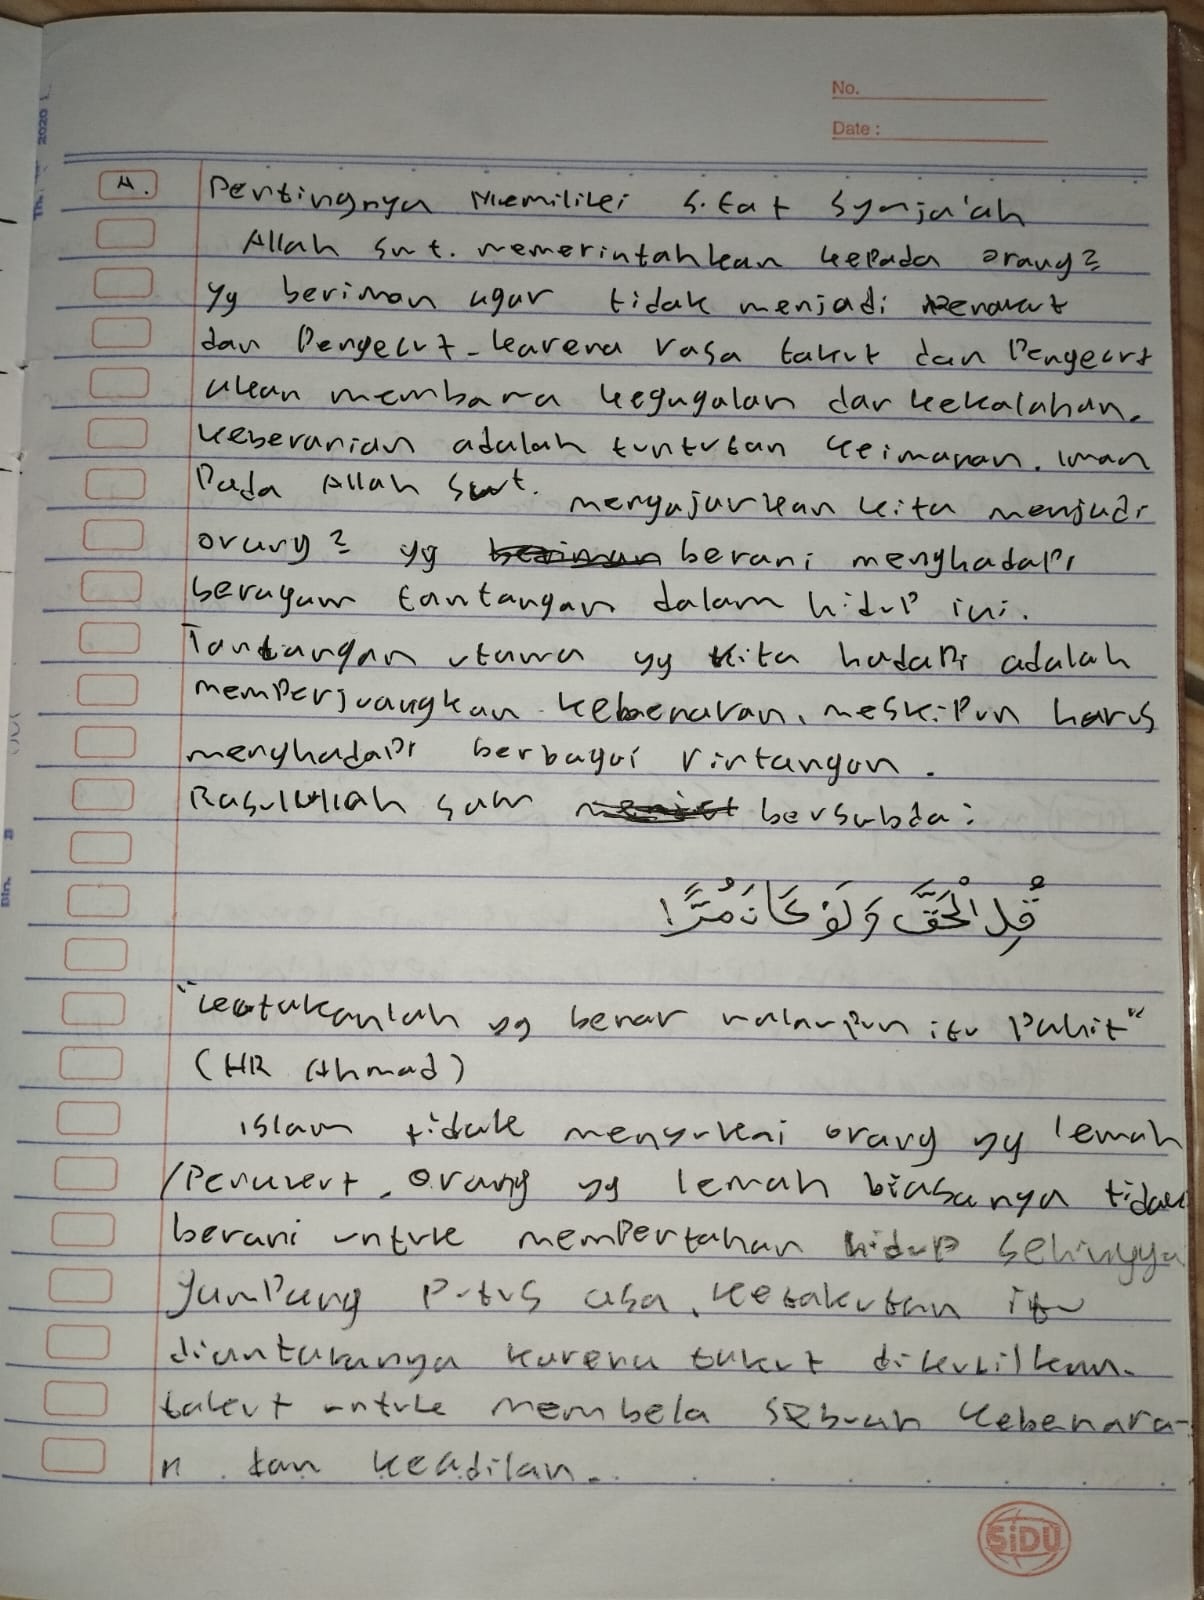 No.
Date :
A. Pentingnya Memiliki sifat Syaja'ah
Allah Swt. memerintahkan kepada orang2
yg beriman agar tidak menjadi penakut
dan Pengecut. karena rasa takut dan Pengecut
akan membawa kegagalan dan kekalahan.
keberanian adalah tuntutan keimanan. iman
Pada Allah Swt. mengajurkan kita menjadi
orang2 yg berani menghadapi
beragam tantangan dalam hidup ini.
Tantangan utama yg kita hadapi adalah
memperjuangkan kebenaran, meskipun harus
menghadapi berbagai rintangan.
Rasulullah saw bersabda:
قُلِ الْحَقَّ وَلَوْ كَانَ مُرًّا
"katakanlah yg benar walaupun itu Pahit"
(HR Ahmad)
islam tidak menyukai orang yg lemah
/Penakut. orang yg lemah biasanya tidak
berani untuk mempertahan hidup sehingga
gampang putus asa. ketakutan itu
diantaranya karena takut dikucilkan.
takut untuk membela sebuah kebenara-
n dan keadilan.
SiDU